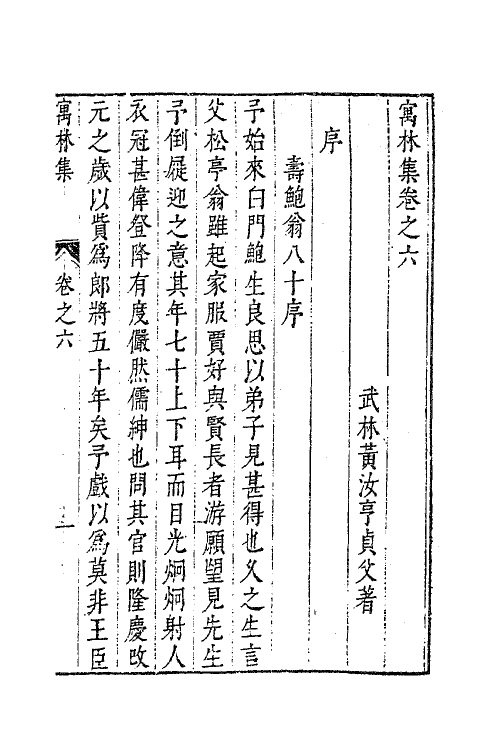 寓林集卷之六
武林黃汝亨貞父著
序
壽鮑翁八十序
予始來白門鮑生良思以弟子見甚得也久之生言
父松亭翁雖起家服賈好與賢長者游願望見先生
予倒屣迎之意其年七十上下耳而目光炯炯射人
衣冠甚偉登降有度儼然儒紳也問其官則隆慶改
元之歲以貲爲郎將五十年矣予戲以爲莫非王臣
寓林集
卷之六
一